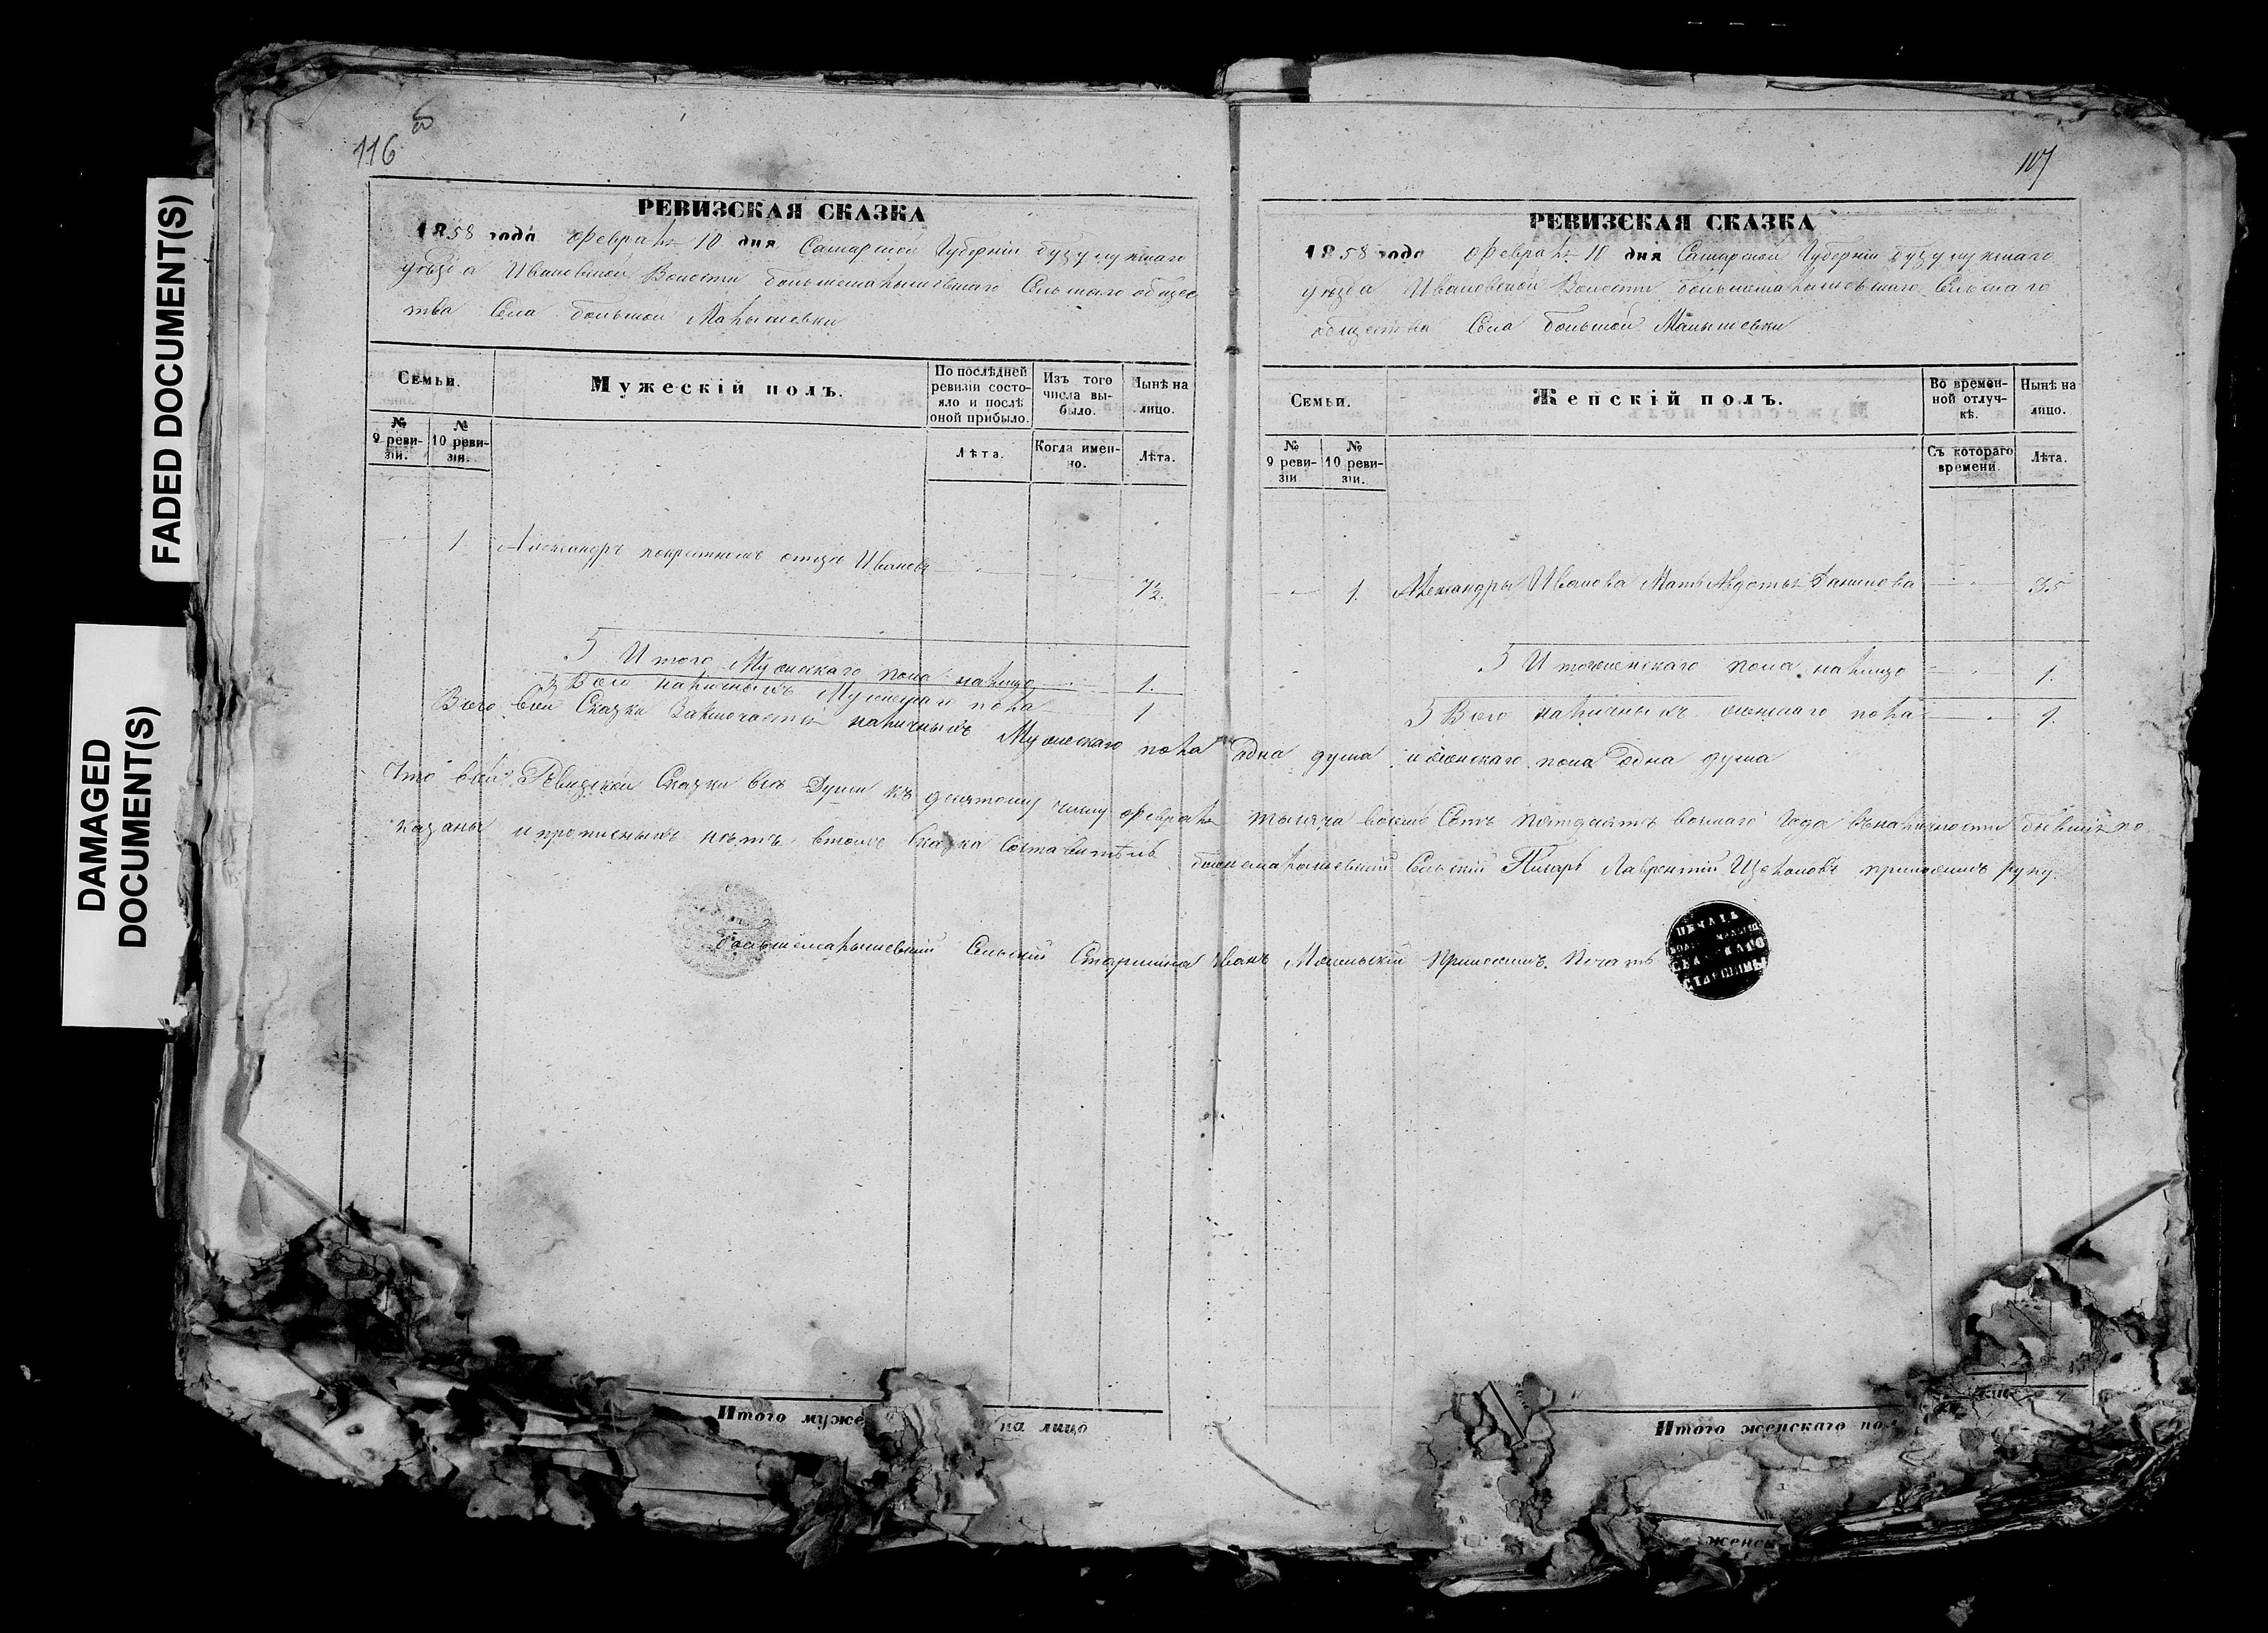 FADED DOCUMENT(S)
DAMAGED
DOCUMENT(S)
116
РЕВИЗСКАЯ СКАЗКА
1858 года Февраля 10 дня Самарской Губерніи Бузулукскаго
уѣзда Ивановской Волости большемалышевскаго Сельскаго общес
тва Села большой Малышевки
Семьи.
Мужескій полъ.
По послѣдней ревизіи состояло и послѣ оной прибыло.
Изъ того числа выбыло.
Нынѣ на лицо.
№ 9 ревизіи.
№ 10 ревизіи.
Лѣта.
Когда именно.
Лѣта.
1 Александръ покрестному отцу Ивановъ
½
Итого Мужескаго пола налицо 1.
Всего наличныхъ Мужескаго пола 1
107
РЕВИЗСКАЯ СКАЗКА
1858 года Февраля 10 дня Самарской Губерніи Бузулукскаго
уѣзда Ивановской Волости большемалышевскаго Сельскаго
общества Села большой Малышевки
Семьи.
Женскій полъ.
Во временной отлучкѣ.
Нынѣ на лицо.
№ 9 ревизіи
№ 10 ревизіи.
Съ котораго времени.
Лѣта.
1. Александры Иванова Мать Авдотья 35
Итого женскаго пола налицо 1.
Всего наличныхъ женскаго пола 1.
Всего всей Сказки Заключается наличныхъ Мужескаго пола одна душа и женскаго пола одна душа
Что всей Ревизской Сказки всѣ Души къ десятому числу Февраля тысяча восемь Сотъ пятдесятъ восмаго Года вналичности бывшія по
казаны и прописныхъ нѣтъ втомъ Сказка Составитель большемалышевскій Сельскій Писарь Лаврентій руку.
большемалышевскій Сельскій Старшина Иванъ Печать
ПЕЧАТЬ
СЕЛЬСКАГО
СТАРШИНЫ
Итого муже
на лицо
Итого женскаго пол
женск